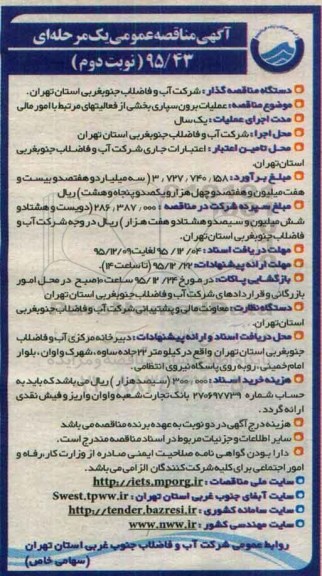 آگهی مناقصه عمومی یک مرحله‌ای
۹۵/۴۳ (نوبت دوم)
دستگاه مناقصه گذار: شرکت آب و فاضلاب جنوبغربی استان تهران.
موضوع مناقصه: عملیات برون سپاری بخشی از فعالیتهای مرتبط با امور مالی
مدت اجرای عملیات: یک سال
محل اجرا: شرکت آب و فاضلاب جنوبغربی استان تهران
محل تامین اعتبار: اعتبارات جاری شرکت آب و فاضلاب جنوبغربی
استان تهران.
مبلغ برآورد: ۳,۷۲۷,۷۴۰,۱۵۸ (سه میلیارد و هفتصد و بیست و
هفت میلیون و هفتصد و چهل هزار و یکصد و پنجاه و هشت) ریال
مبلغ سپرده شرکت در مناقصه: ۲۸۶,۳۸۷,۰۰۰ (دویست و هشتاد و
شش میلیون و سیصد و هشتاد و هفت هزار) ریال در وجه شرکت آب و
فاضلاب جنوبغربی استان تهران.
مهلت دریافت اسناد: ۹۵/۱۲/۰۴ لغایت ۹۵/۱۲/۰۹
مهلت ارائه پیشنهادات: ۹۵/۱۲/۲۲ (تا ساعت ۱۴)
بازگشایی پاکات: در مورخ ۹۵/۱۲/۲۴ ساعت ۱۰ صبح در محل امور
بازرگانی و قراردادهای شرکت آب و فاضلاب جنوبغربی استان تهران
دستگاه نظارت: معاونت مالی و پشتیبانی شرکت آب و فاضلاب جنوبغربی
استان تهران.
محل دریافت اسناد و ارائه پیشنهادات: دبیرخانه مرکزی آب و فاضلاب
جنوبغربی استان تهران واقع در کیلومتر ۲۲ جاده ساوه، شهرک واوان، بلوار
امام خمینی، روبه روی پاسگاه نیروی انتظامی.
هزینه خرید اسناد: ۳۰۰,۰۰۰ (سیصد هزار) ریال می باشد که باید به
حساب شماره ۲۷۰۶۹۷۷۳۹ بانک تجارت شعبه واوان واریز و فیش نقدی
ارائه گردد.
هزینه درج آگهی در دو نوبت به عهده برنده مناقصه می باشد
سایر اطلاعات و جزئیات مربوط در اسناد مناقصه مندرج است.
دارا بودن گواهی نامه صلاحیت ایمنی صادره از وزارت کار، رفاه و
امور اجتماعی برای کلیه شرکت کنندگان الزامی می باشد.
سایت ملی مناقصات: http://iets.mporg.ir
سایت آبفای جنوب غربی استان تهران: Swest.tpww.ir
سایت سامانه کشوری: http://tender.bazresi.ir
سایت مهندسی کشور: www.nww.ir
روابط عمومی شرکت آب و فاضلاب جنوب غربی استان تهران
(سهامی خاص)